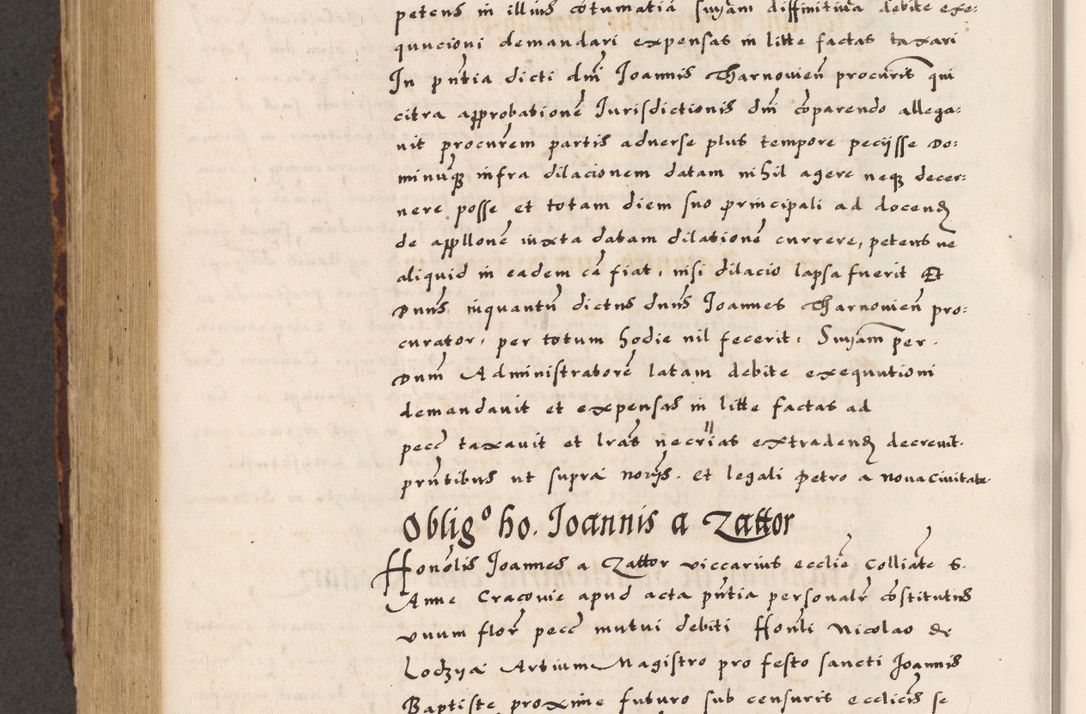 petens in illius cotumatiā suȳam diffinitiva debite exe:
qunctioni demandari expensas in litte factas taxari
In pn̄tia dicti dn̄i Joannis Tharnovien̄ procuris qui
citra approbationē Jurisdictionis dn̄i cōparendo allega:
vit procurēm partis adverse plus tempore pecijsse Do:
minumq̄ infra dilacionem datam nihil agere neq̄ decer:
nere posse et totam diem suo principali ad docend
de appllonē iuxta datam dilationē currere, petens ne
aliquid in eadem cā fiat, nisi dilacio lapsa fuerit Et
Dnns inquantū dictus dnns Joannes Tharnovien̄ pro:
curator, per totum hodie nil fecerit, Suȳam per
Dnm Administratorē latam debite exequutioni
demandavit et expensas in litte factas ad
pecc taxavit et lrās necrias extradend decrevit.
prn̄tibus ut supra norijs. et legali Petro a nova Civitate
Obligº ho. Joannis a Zattor
Honōlis Joannes a Zattor viccarius ecclīe Colliāte S.
Anne Cracovie apud acta pn̄tia personalr̄ cōstitutus
unum flor̄ pecc̄ mutui debiti Honli Nicolao de
Lodzya Artium Magistro pro festo sancti Joannis
Baptiste proxime futuro sub censuris ecclicis se